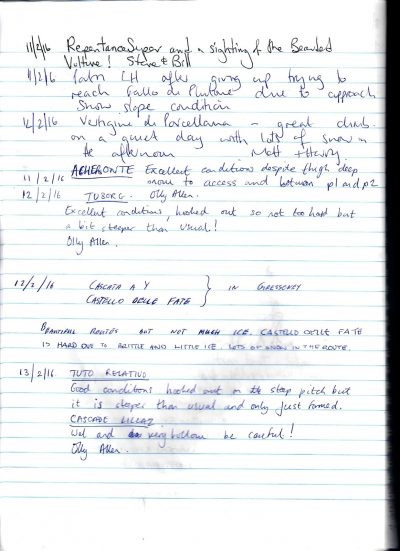 11/2/16 Repentance Super and a sighting of the Bearded
Vulture! Steve & Bill
11/2/16 Patri LH after giving up trying to
reach Fallo di Plutone due to approach
snow slope condition
12/2/16 Vertigine di Porcellana - great climb
on a quiet day with lots of snow in
the afternoon. Matt + Harry.
ACHERONTE Excellent conditions despite thigh deep
11/2/16 snow to access and between p1 and p2
12/2/16 TUBORG. Olly Allen.
Excellent conditions, hooked out so not too hard but
a bit steeper than usual!
Olly Allen.
12/2/16 CASCATA A Y } IN GRESSONEY
CASTELLO DELLE FATE
BEAUTIFUL ROUTES BUT NOT MUCH ICE. CASTELLO DELLE FATE
IS HARD DUE TO BRITTLE AND LITTLE ICE. LOTS OF SNOW IN THE ROUTE.
13/2/16 TUTO RELATIVO
Good conditions hooked out on the steep pitch but
it is steeper than usual and only just formed.
CASCADE LILLAZ
Wet and very bottom be careful!
Olly Allen.